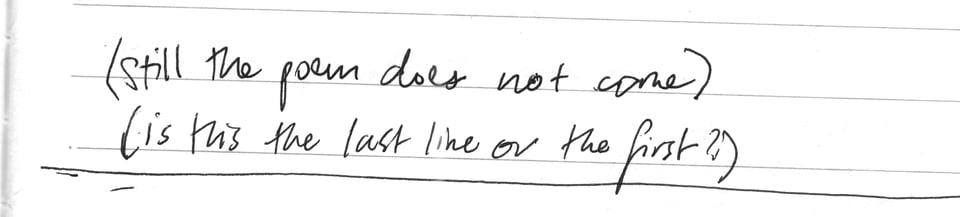 (still the poem does not come)
(is this the last line or the first?)